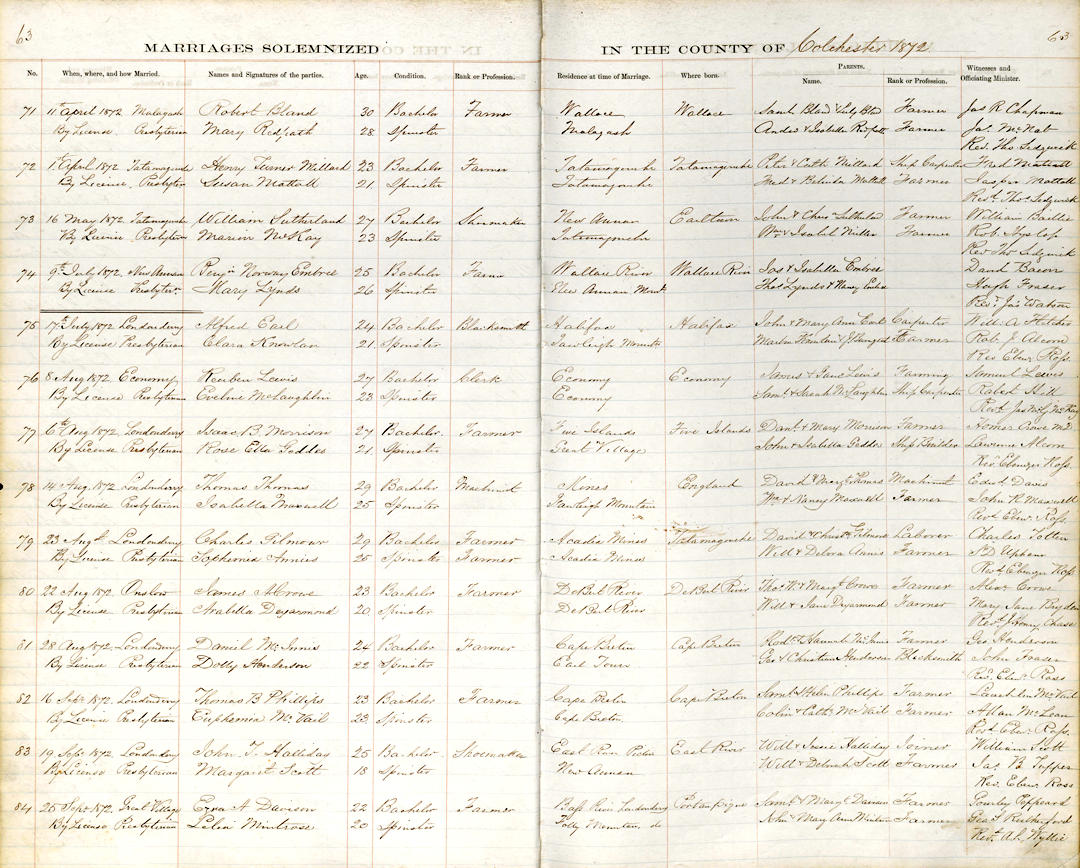 63
63
MARRIAGES SOLEMNIZED
IN THE COUNTY OF Colchester 1872
No. When, where, and how Married. Names and Signatures of the parties. Age. Condition. Rank or Profession. Residence at time of Marriage. Where born. PARENTS. Name. Rank or Profession. Witnesses and Officiating Minister.
71 11th April 1872 Malagash Robert Bland 30 Bachelor Farmer Wallace Wallace Saml Bland & Farmer Jas R Chapman
By License Presbyterian Mary Redpath 28 Spinster Malagash & Isabella Farmer Jas McNab
Revd Thos Sedgwick
72 April 1872 Tatamagouche Henry Turner Millard 23 Bachelor Farmer Tatamagouche Tatamagouche Peter & Cath Millard Ship Carpenter Fred Mattatt
By License, Presbyter Susan Mattatt 21 Spinster Tatamagouche Fred & Belinda Mattatt Farmer Jasper Mattatt
Revd Thos Sedgwick
73 16 May 1872 Tatamagouche William Sutherland 27 Bachelor Shoemaker New Annan Earltown John & Sutherland Farmer William Baillie
By License Presbyterian Marion McKay 23 Spinster Tatamagouche Wm & Isabel Farmer Rob. Hyslop
Rev Thos Sedgwick
74 9th July 1872 New Annan Benjn Norway Embree 25 Bachelor Farmer Wallace River Wallace River Jos & Isabella Embree David Bacon
By License Presbytern Mary Lynds 26 Spinster New Annan Thos Lynds & Nancy Hugh Fraser
Revd Jas Watson
75 17th July 1872 Londonderry Alfred Earl 24 Bachelor Blacksmith Halifax Halifax John & Mary Ann Earl Carpenter Will. A Fletcher
By License Presbyterian Clara 21 Spinster Farmer Rob. J. Alcorn
Rev Ebenr Ross
76 8 Aug 1872 Economy Reuben Lewis 27 Bachelor Clerk Economy Economy James & Jane Lewis Farming Samuel Lewis
By License Presbyterian Eveline McLaughlin 23 Spinster Economy Saml & Sarah McLaughlin Ship Carpenter Robert Hill
Revd Jas
77 6th Aug 1872 Londonderry Isaac B. Morrison 27 Bachelor Farmer Five Islands Five Islands Danl & Mary Morrison Farmer Homer Crowe
By License Presbyterian Rose Ella Geddes 21 Spinster Great Village John & Isabella Geddes Ship Builder Alcorn
Rev Ebenezer Ross
78 14 Aug 1872 Londonderry Thomas Thomas 29 Bachelor Machinist Mines England David & Mary Thomas Machinist Edwd Davis
By License Presbyterian Isabella Maxwell 25 Spinster Mountain Wm & Nancy Maxwell Farmer John R Maxwell
Revd Ebenr Ross
79 23 Augt Londonderry Charles Gilmour 29 Bachelor Farmer Acadia Mines Tatamagouche David & Gilmour Laborer Charles Totten
By License Presbyterian Sophemia Annies 25 Spinster Farmer Acadia Mines Will & Debora Annis Farmer Upham
Revd Ebenezer Ross
80 22 Aug 1872 Onslow James A Crowe 23 Bachelor Farmer De Bert River De Bert River Thos W & Mary Crowe Farmer Alex Crowe
By License Presbyterian Arabella Deyarmond 20 Spinster De Bert River Will & Jane Deyarmond Farmer Mary Jane Bryden
Revd J Henry Chase
81 28 Aug 1872 Londonderry Daniel McInnis 24 Bachelor Farmer Cape Breton Cape Breton & Hannah McInnis Farmer Geo Henderson
By License Presbyterian Dolly Henderson 22 Spinster Earl Town Geo & Christian Henderson Blacksmith John Fraser
Rev. Ebenr Ross
82 16 Sept 1872 Londonderry Thomas B Phillips 23 Bachelor Farmer Cape Breton Cape Breton Saml & Helen Phillips Farmer Lauchlin McVail
By License Presbyterian Euphemia McVail 23 Spinster Cape Breton Colin & Cath McVail Farmer Allan McLean
Revd Ebenr Ross
83 19 Sept 1872 Londonderry John T. Halliday 25 Bachelor Shoemaker East River Pictou East River Will & Halliday Joiner William Scott
By License Presbyterian Margaret Scott 18 Spinster New Annan Will & Deborah Scott Farmer Jas B Tupper
Rev. Ebenr Ross
84 25 Sept 1872 Great Village Ezra A Davison 22 Bachelor Farmer Bass River Londonderry Portaupique Saml & Mary Davison Farmer Gourley Peppeard
By License Presbyterian Lelia 20 Spinster Folly Mountain do John & Mary Ann Farmer Geo Rutherford
Revd A. L. Wyllie